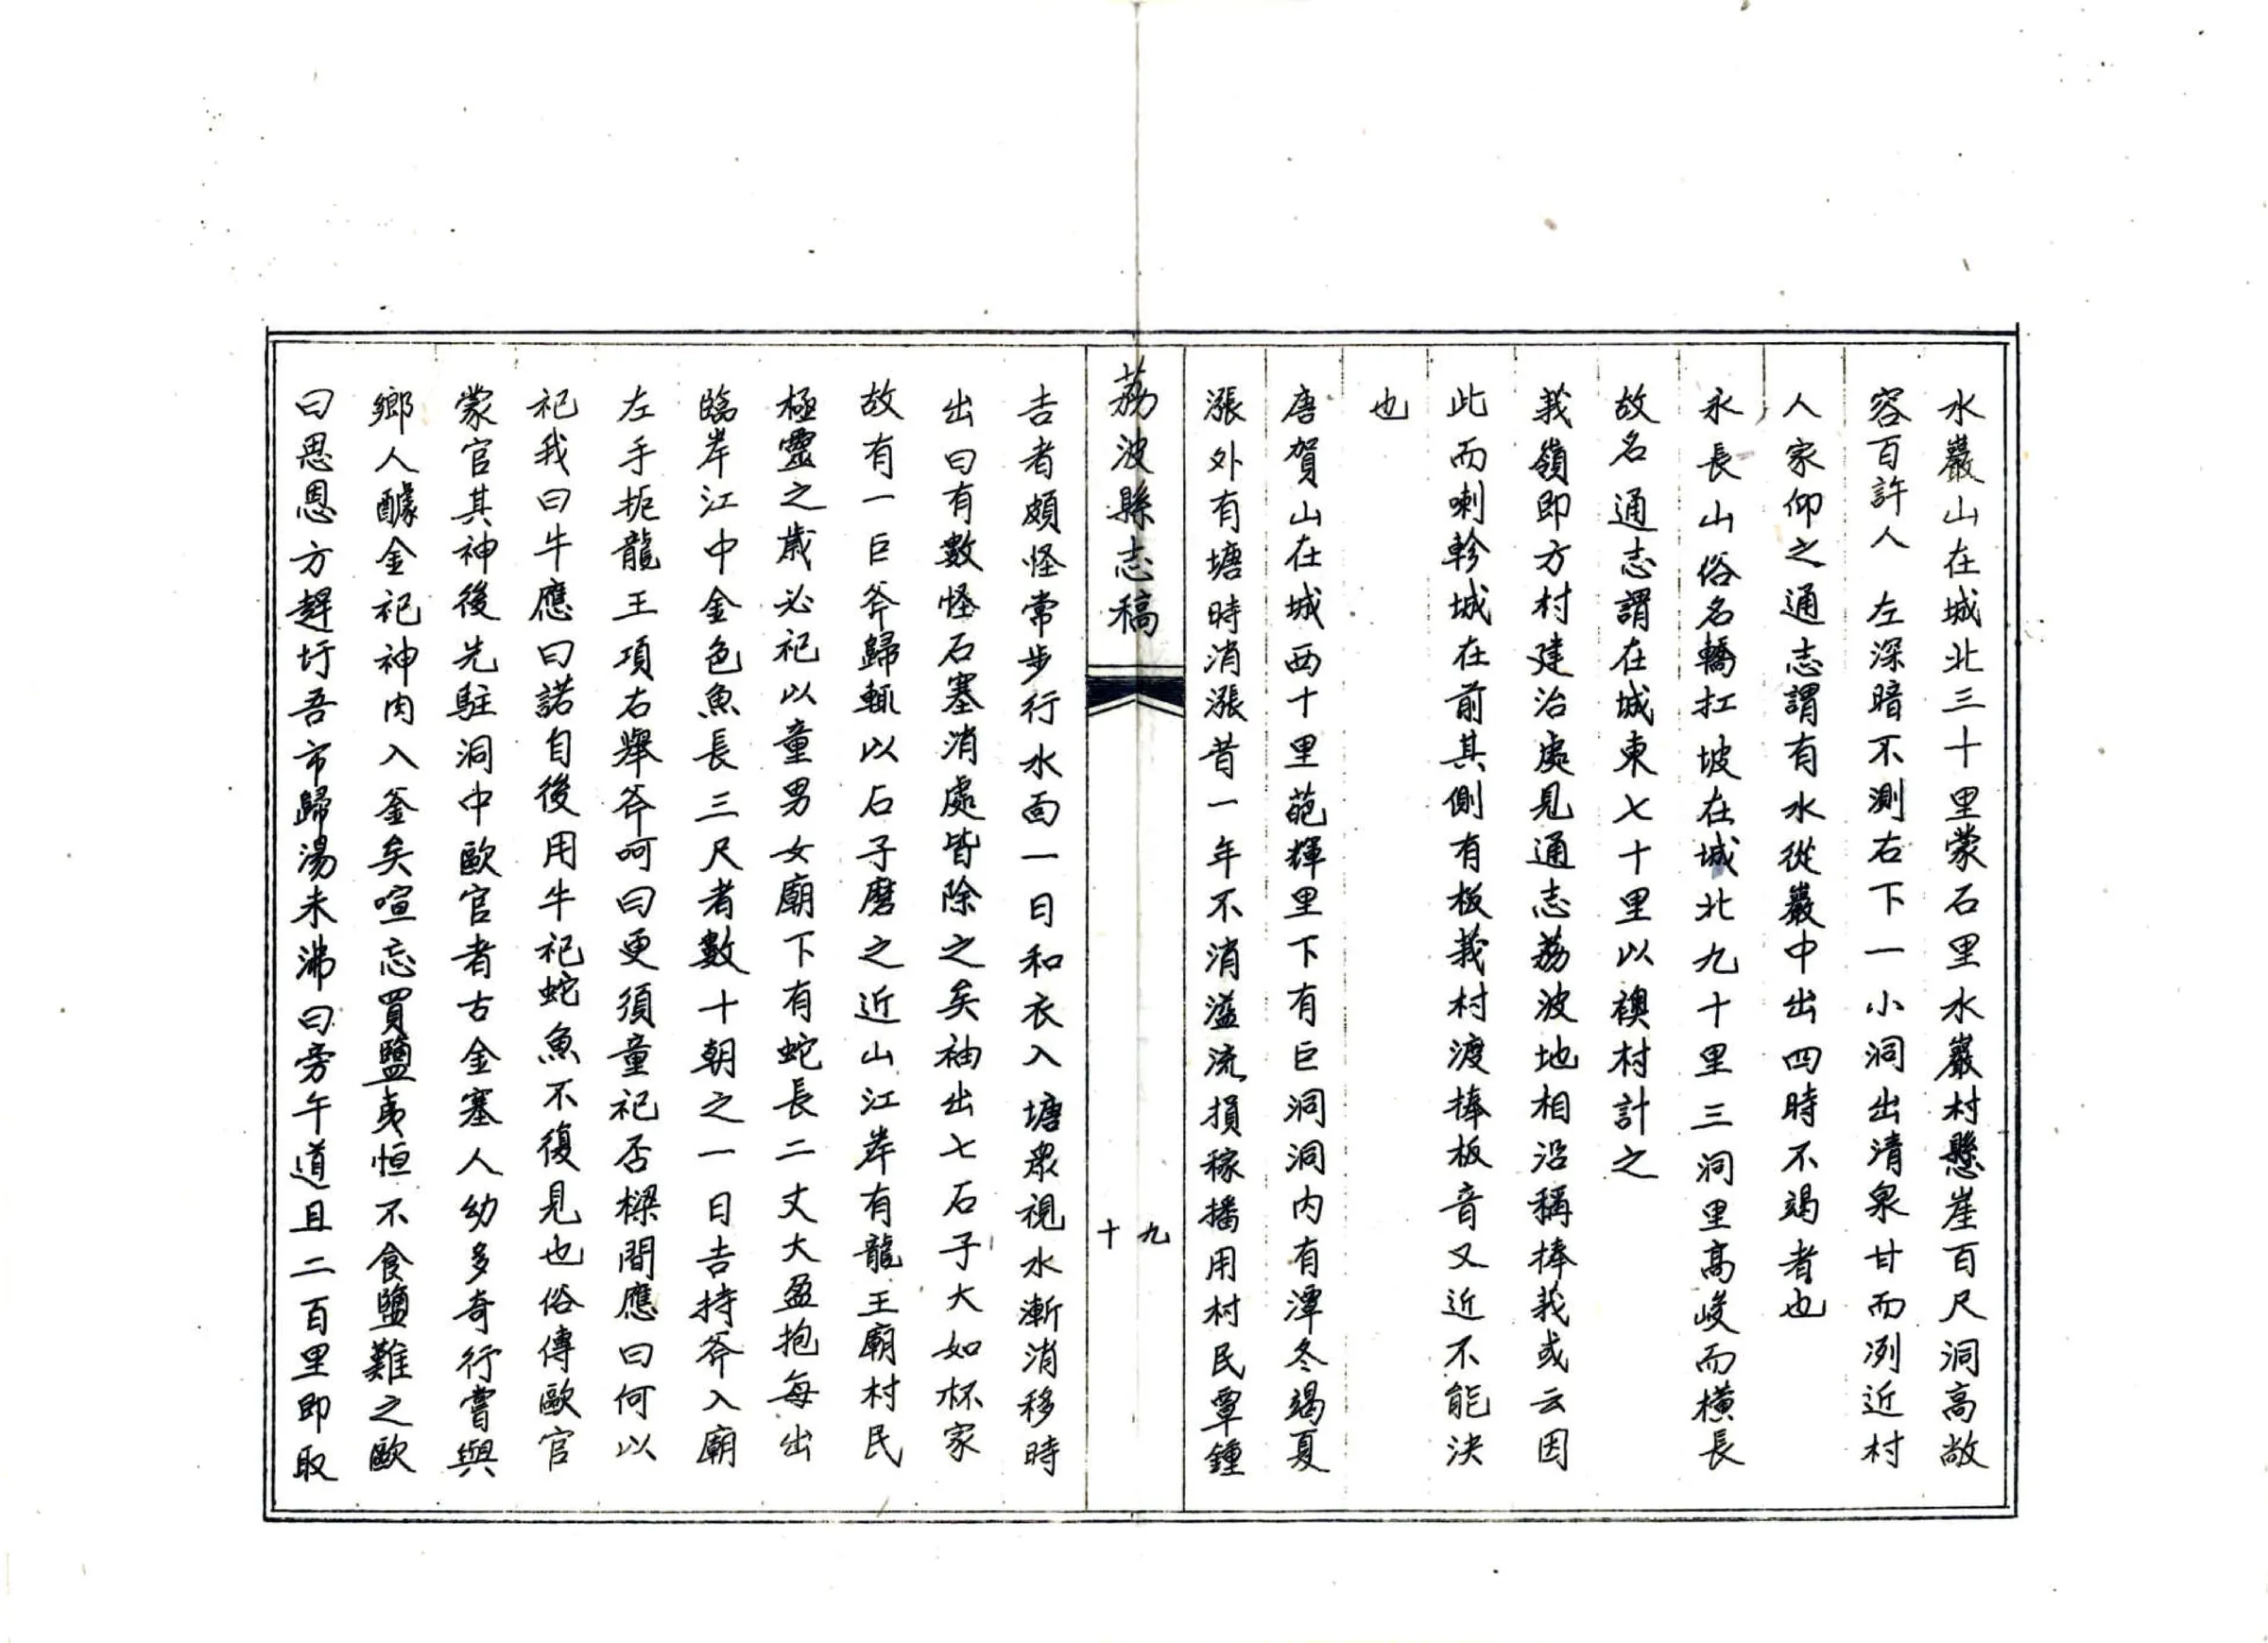 水巖山在城北三十里蒙石里水巖村懸崖百尺洞高敞
容百許人　左深暗不測右下一小洞出清泉甘而冽近村
人家仰之通志謂有水從巖中出四時不竭者也
永長山俗名轎扛坡在城北九十里三洞里高峻而橫長
故名通志謂在城東七十里以襖村計之
莪嶺即方村建治處見通志荔波地相沿稱捧莪或云因
此而喇軫城在前其側有板莪村渡捧板音又近不能決
也
唐賀山在城西十里葩輝里下有巨洞洞內有潭冬竭夏
漲外有塘時消漲昔一年不消溢流損稼播用村民覃鍾
荔波縣志稿
十九
吉者頗怪常步行水面一日和衣入塘衆視水漸消移時
出曰有數怪石塞消處皆除之矣袖出七石子大如杯家
故有一巨斧歸輒以石子磨之近山江岸有龍王廟村民
極靈之歲必祀以童男女廟下有蛇長二丈大盈抱每出
臨岸江中金色魚長三尺者數十朝之一日吉持斧入廟
左手扼龍王項右舉斧呵曰更須童祀否樑間應曰何以
祀我曰牛應曰諾自後用牛祀蛇魚不復見也俗傳歐官
蒙官其神後先駐洞中歐官者古金塞人幼多奇行嘗與
鄉人醵金祀神肉入釜矣喧忘買鹽夷恒不食鹽難之歐
曰思恩方趕圩吾市歸湯未沸曰旁午道且二百里即取